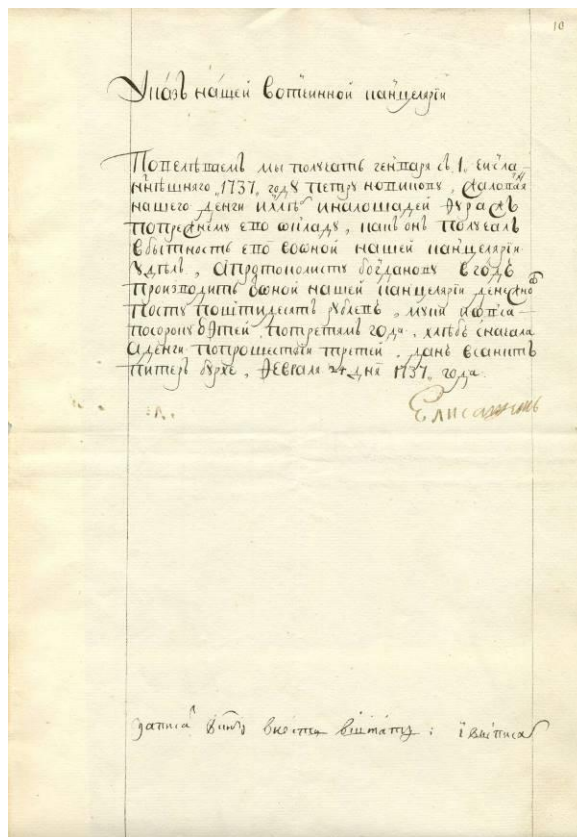 10
Указъ нашей вотчинной канцелярiи
Повелѣваемъ мы получать генваря съ 1, числа
нынѣшняго 1737, году петру новикову, жалованя
нашего денги и хлѣбъ и на лошадей фуражъ
по прежнему ево окладу, какъ онъ получалъ
в бытность ево в оной нашей канцелярiи
У дѣлъ, а богданову в годъ
производить в оной нашей канцелярiи денежно
по сту по штидесятъ рублевъ, муки и овса
по сороку по третямъ года, хлѣбъ сначала
а денги по прошествiи третей, данъ в санктъ
питеръ бурхе, Февраля 24 дня 1737, года
Елисаветъ
записа в книгу внести в штатъ: i выписа